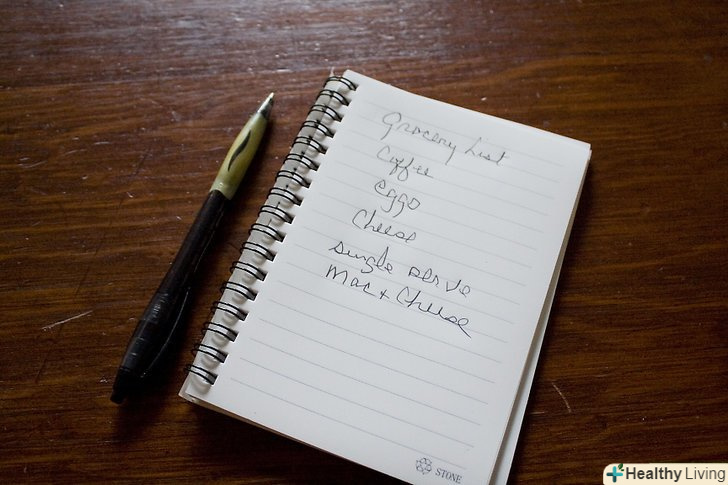 Grocery List
Coffee
eggs
Cheese
single serve
Mac + Cheese
STONE
Healthy Living